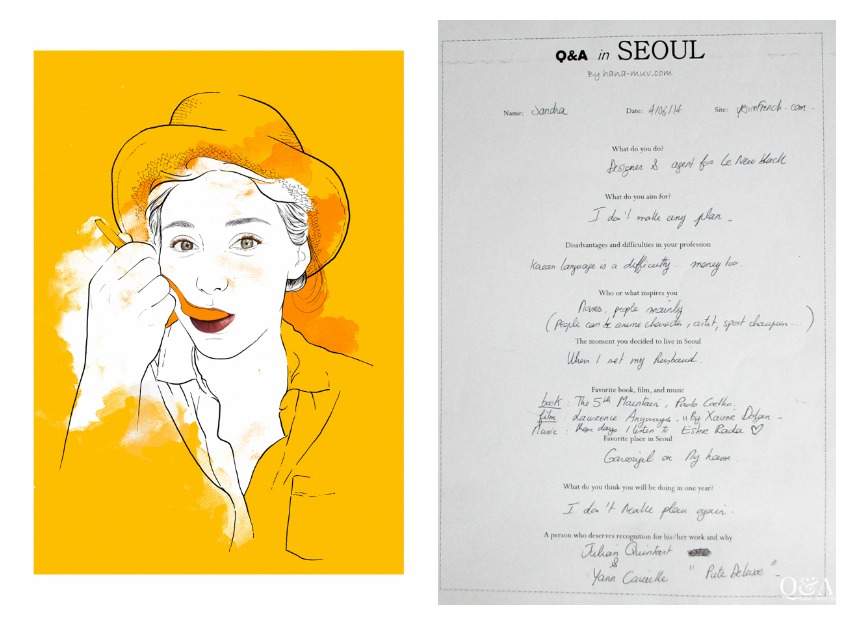 Q&A in SEOUL
By hana-muv.com
Name: Sandra Date: 4/06/14 Site:
What do you do?
Designer & agent for Le New Black
What do you aim for?
I don't make any plan -
Disadvantages and difficulties in your profession
Korean language is a difficulty. money too
Who or what inspires you
people mainly
(People can be anime character, artist, sport champion ... )
The moment you decided to live in Seoul
When I met my husband.
Favorite book, film, and music
book : The 5th Mountain, Paulo Coelho.
film : Lawrence Anyways. "By Xavier Dolan -
Music : these days I listen to Ester Rada ♡
Favorite place in Seoul
Garosugil or My house
What do you think you will be doing in one year?
I don't make plan again.
A person who deserves recognition for his/her work and why
Julian Quintart
&
Yann " Pute Deluxe " -
Q&A